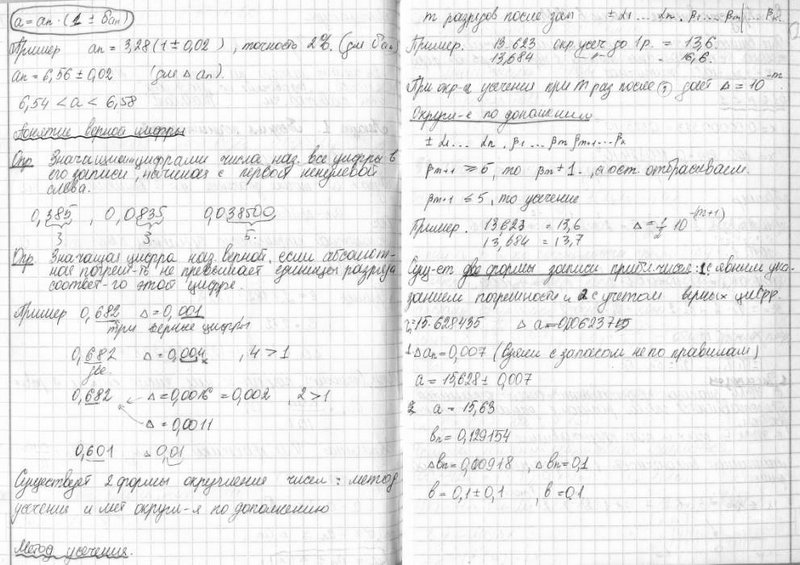 a = aп · (1 ± δaп)
Пример aп = 3,28(1 ± 0,02), точность 2%. (для δaп)
aп = 6,56 ± 0,02 (для Δaп).
6,54 < a < 6,58
Понятие верной цифры
Опр Значащими цифрами числа наз. все цифры в
его записи, начиная с первой ненулевой
слева.
0,385 , 0,0835 0,038500
3 3 5.
Опр Значащая цифра наз. верной, если абсолют-
ная погреш-ть не превышает единицы разряда
соответ-го этой цифре.
Пример 0,682 Δ = 0,001
три верные цифры
0,682 Δ = 0,004 , 4 > 1
две
0,682 Δ = 0,0016 = 0,002 , 2 > 1
Δ = 0,0011
0,601 Δ 0,01
Существует 2 формы округление чисел: метод
усечения и мет округл-я по дополнению
Метод усечения.
m разрядов после зап ± α1... αn, β1... βm
Пример. 13.623 окр. усеч до 1р. = 13,6.
13,684 = 13,6.
При окр-и усечения при m раз после , дает Δ = 10^-m.
Округл-е по дополнению
± α1... αn, β1... βm βm+1... βк
βm+1 ≥ 5, то βm ± 1, а ост. отбрасываем.
βm+1 ≤ 5, то усечение
Пример. 13.623 = 13,6 Δ = 1/2 10^-(m+1)
13,684 = 13,7
Сущ-ет две формы записи прибл. числа: 1 с явным ука-
занием погрешности и 2 с учетом верных цифр.
15.628435 Δ a = 0,00623715
1 Δaп = 0,007 (взяли с запасом не по правилам)
a = 15,628 ± 0,007
2. a = 15,63
вп = 0,129154
Δвп = 0,00918 , Δвп = 0,1
в = 0,1 ± 0,1 , в = 0,1